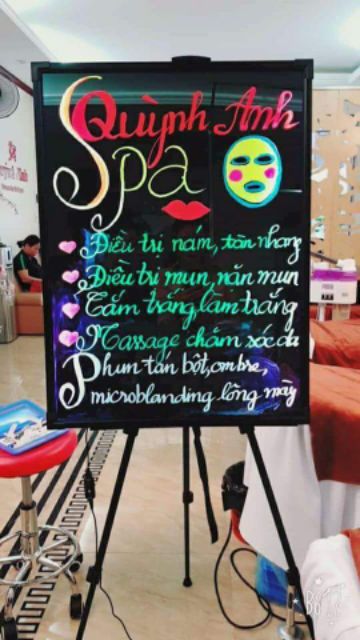 Quỳnh Anh
Spa
Điều trị nám, tàn nhang
Điều trị mụn, nặn mụn
Tắm trắng, làm trắng
Massage chăm sóc da
Phun tán bột, ombre,
microblanding lông mày